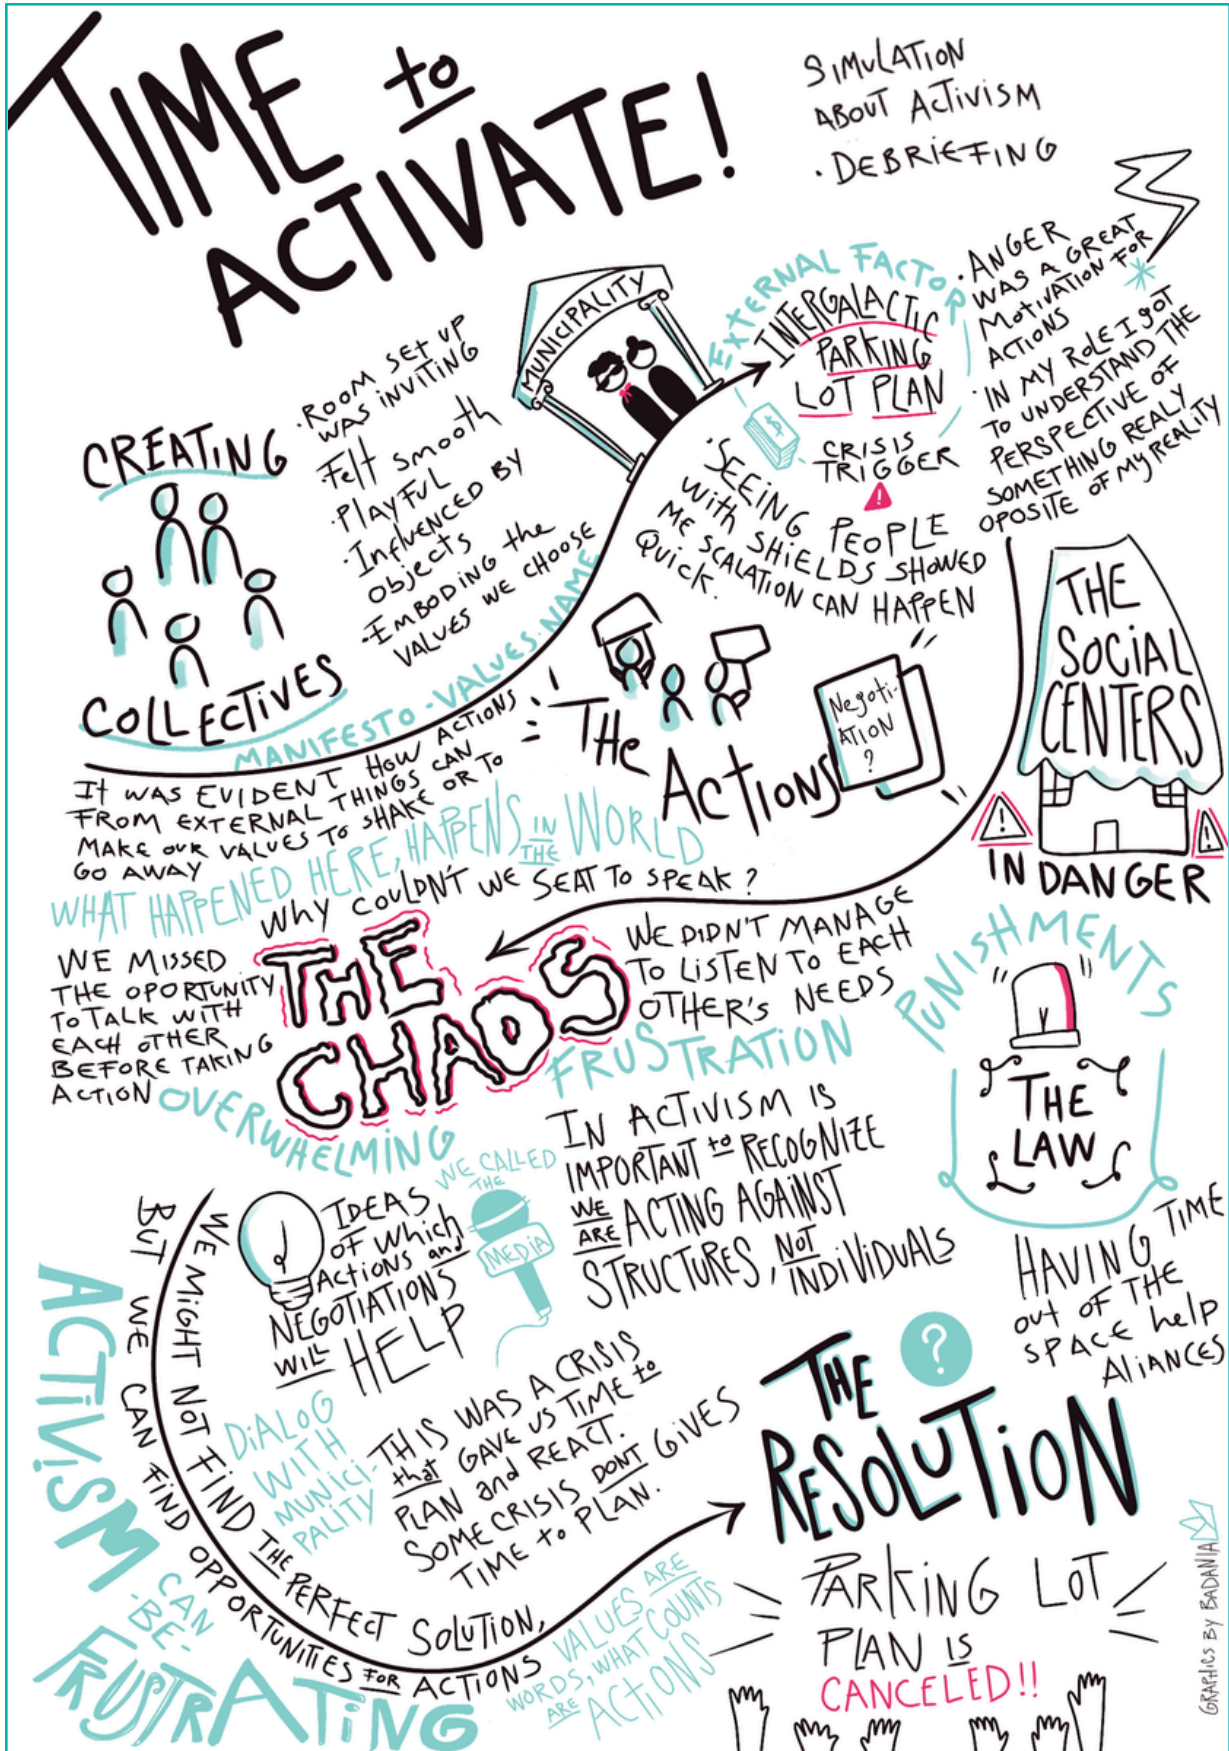 TIME to
ACTIVATE!
SIMULATION
ABOUT ACTIVISM
• DEBRIEFING
CREATING
COLLECTIVES
• ROOM SET UP
WAS INVITING
Felt smooth
• PLAYFUL
• INFLUENCED BY
Objects
• EMBODING the
VALUES WE CHOOSE
MANIFESTO • VALUES • NAME
MUNICIPALITY
EXTERNAL FACTOR
INTERGALACTIC
PARKING
LOT PLAN
$
CRISIS
TRIGGER
!
• SEEING PEOPLE
With SHIELDS SHOWED
ME SCALATION CAN HAPPEN
QUICK.
• ANGER
WAS A GREAT
MOTIVATION FOR
ACTIONS
• IN MY ROLE I GOT
TO UNDERSTAND THE
PERSPECTIVE OF
SOMETHING REALY
OPOSITE OF MY REALITY
THE
SOCIAL
CENTERS
IN DANGER
THE
ACTIONS
Negoti-
ATION
?
IT WAS EVIDENT HOW ACTIONS
FROM EXTERNAL THINGS CAN
MAKE OUR VALUES TO SHAKE OR TO
GO AWAY
WHAT HAPPENED HERE, HAPPENS IN THE WORLD
WHY COULDN'T WE SEAT TO SPEAK?
THE
CHAOS
WE MISSED
THE OPORTUNITY
TO TALK WITH
EACH OTHER
BEFORE TAKING
ACTION
OVERWHELMING
WE DIDN'T MANAGE
TO LISTEN TO EACH
OTHER'S NEEDS
FRUSTRATION
PUNISHMENTS
THE
LAW
IN ACTIVISM IS
IMPORTANT to RECOGNIZE
WE ARE ACTING AGAINST
STRUCTURES, NOT INDIVIDUALS
HAVING TIME
OUT OF THE
SPACE help
ALIANCES
WE CALLED
THE
MEDIA
IDEAS
OF Which
ACTIONS and
NEGOTIATIONS
WILL HELP
DIALOG
WITH
MUNICI-
PALITY
• THIS WAS A CRISIS
that GAVE US TIME to
PLAN and REACT.
SOME CRISIS DONT GIVES
TIME to PLAN.
WE MIGHT NOT FIND THE PERFECT SOLUTION,
BUT WE CAN FIND OPPORTUNITIES FOR ACTIONS
ACTIVISM
CAN
-BE-
FRUSTRATING
VALUES ARE
WORDS, WHAT COUNTS
ARE ACTIONS
THE
?
RESOLUTION
PARKING LOT
PLAN IS
CANCELED!!
GRAPHICS BY BADANIA